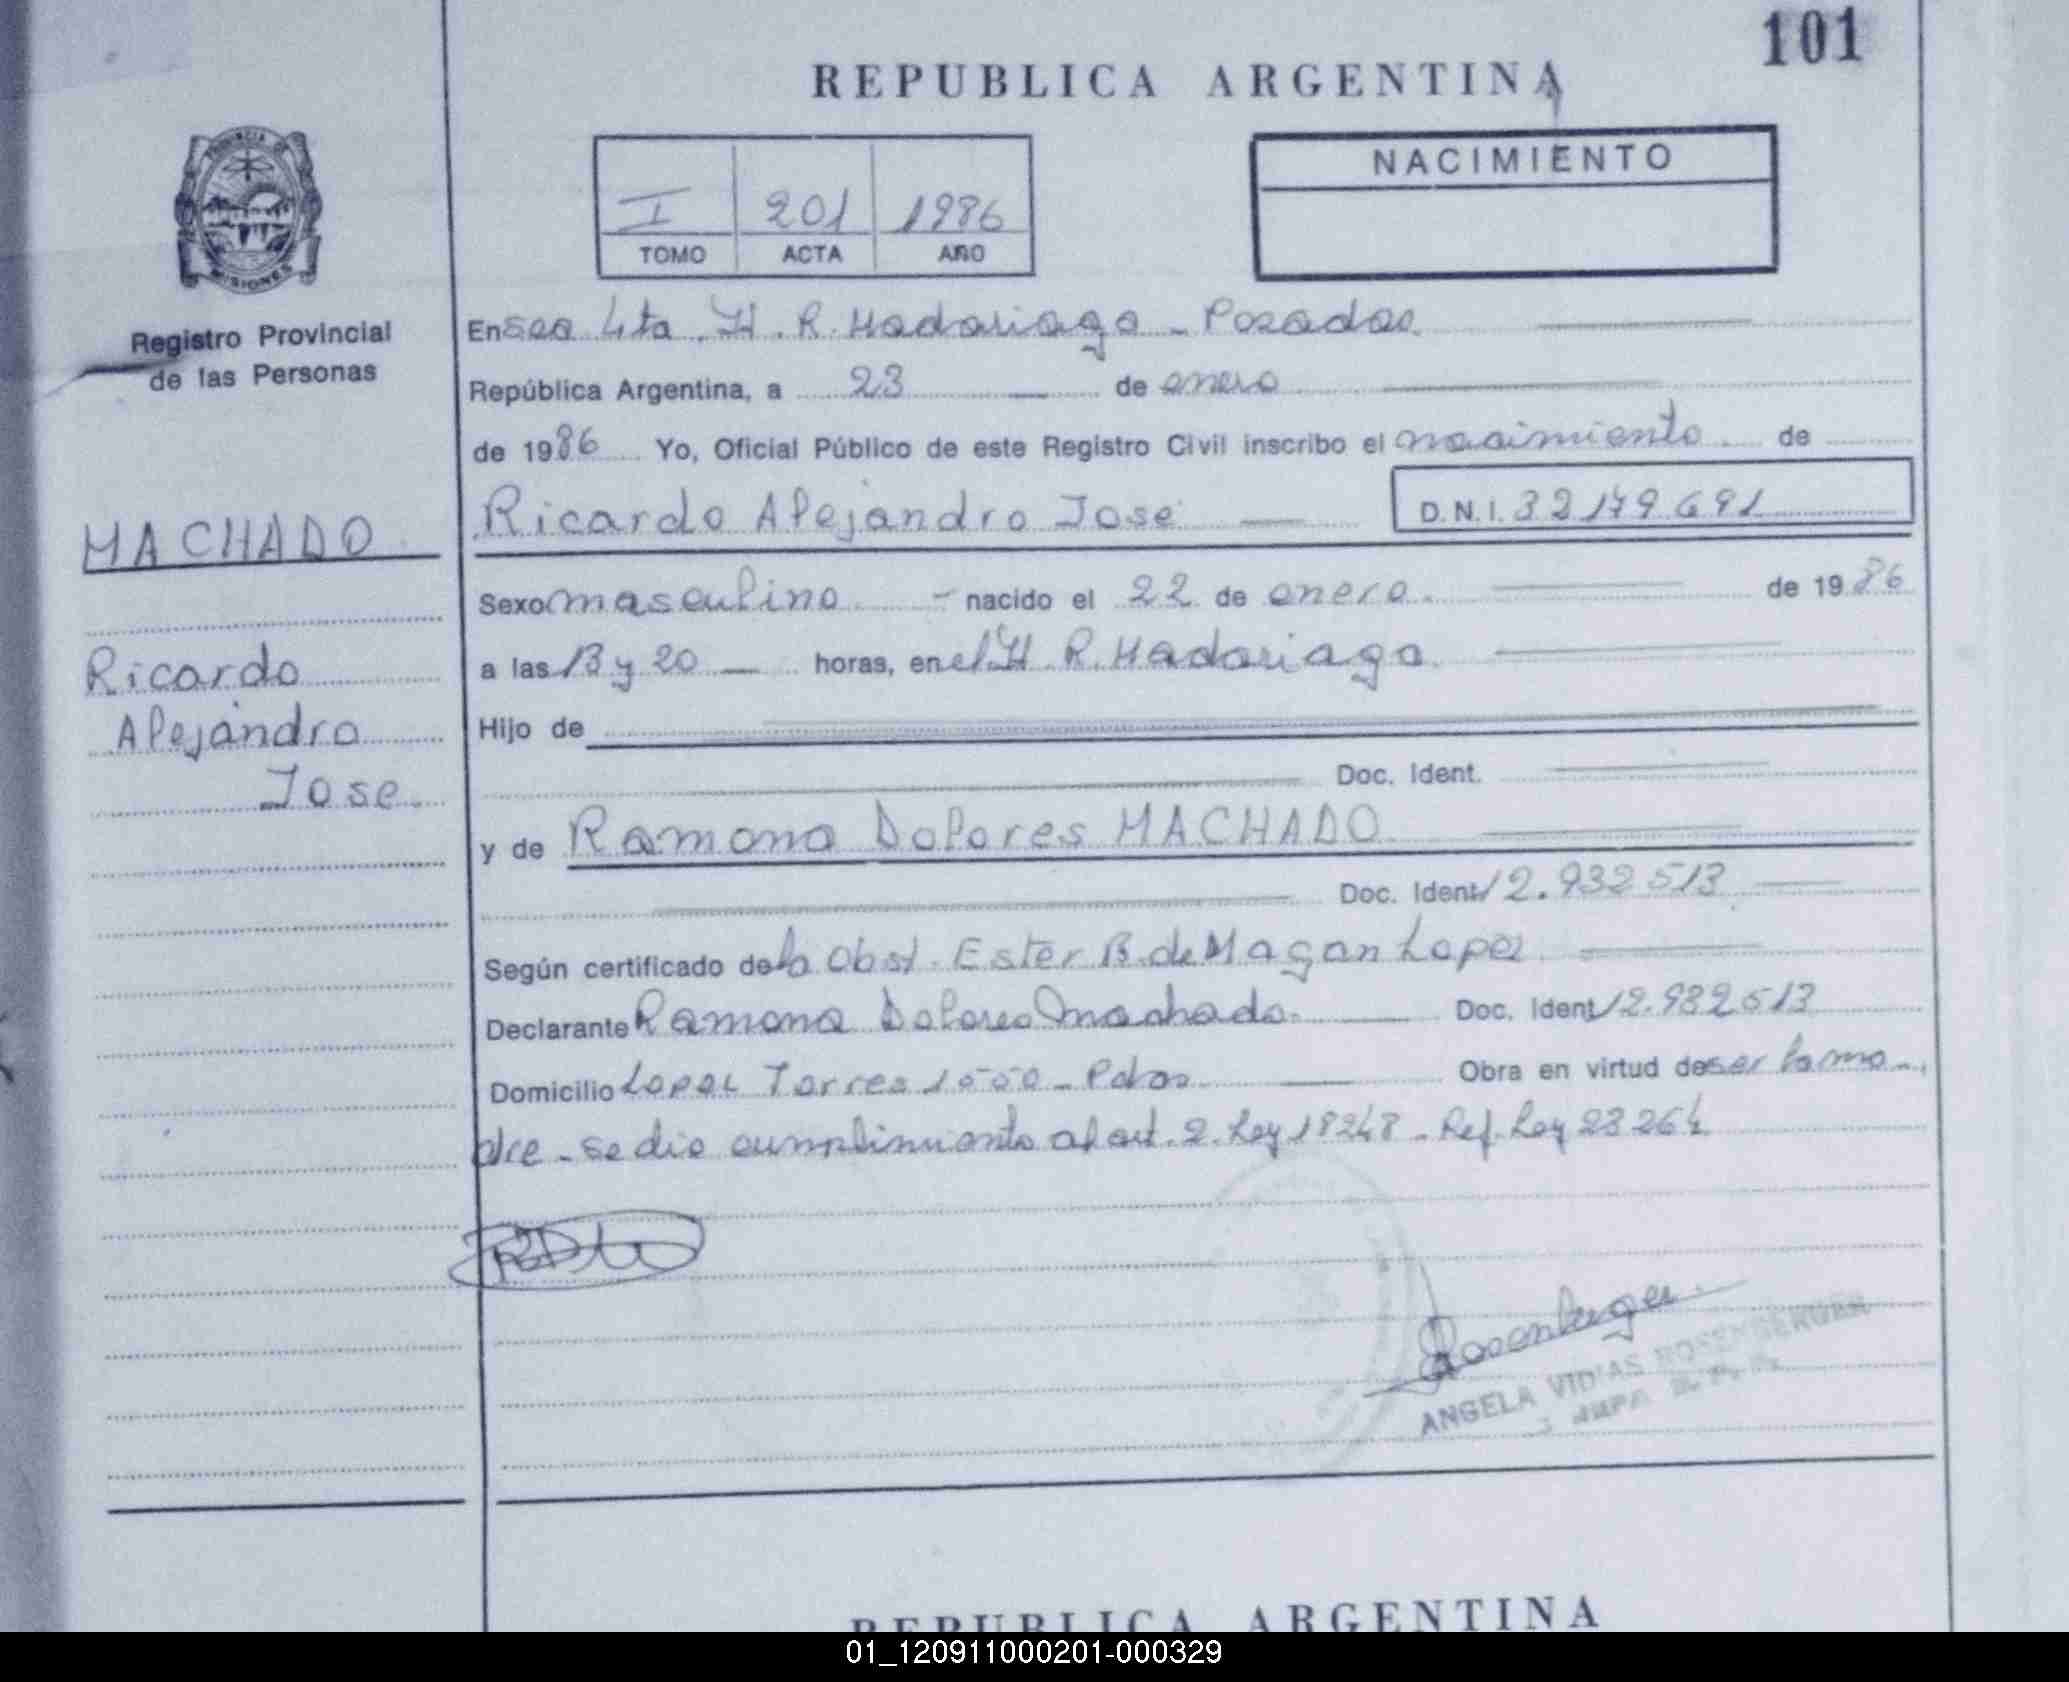 101
REPUBLICA ARGENTINA
PROVINCIA DE
MISIONES
Registro Provincial
de las Personas
I 201 1986
TOMO ACTA AÑO
NACIMIENTO
En Sec 4ta. H. R. Madariaga - Posadas.
República Argentina, a 23 de enero
de 1986 Yo, Oficial Público de este Registro Civil inscribo el nacimiento de
MACHADO
Ricardo Alejandro Jose D.N.I. 32179691
Sexo masculino - nacido el 22 de enero. de 1986
Ricardo
a las 13 y 20 horas, en el H. R. Madariaga
Alejandro
Hijo de
Jose.
Doc. Ident.
y de Ramona Dolores MACHADO
Doc. Ident 12.932513
Según certificado de la Obst. Ester B. de Magan Lopez
Declarante Ramona Dolores Machado. Doc. Ident 12.932513
Domicilio Lopez Torres 1550 - Pdas Obra en virtud de ser la ma-
dre - se dio cumplimiento al art. 2. Ley 18248 - Ref. Ley 23264
Rosenberger
ANGELA VIDIAS ROSENBERGER
REPUBLICA ARGENTINA
01_120911000201-000329